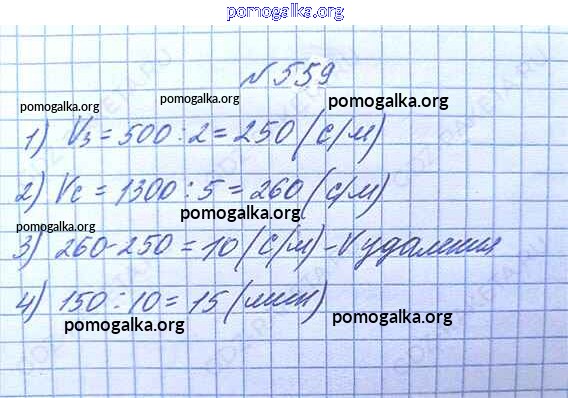 pomogalka.org
№559
pomogalka.org pomogalka.org pomogalka.org
1) Vз = 500 : 2 = 250 (с/м)
2) Vс = 1300 : 5 = 260 (с/м)
pomogalka.org
pomogalka.org
3) 260-250 = 10 (с/м) - V удаления
4) 150 : 10 = 15 (мин)
pomogalka.org pomogalka.org